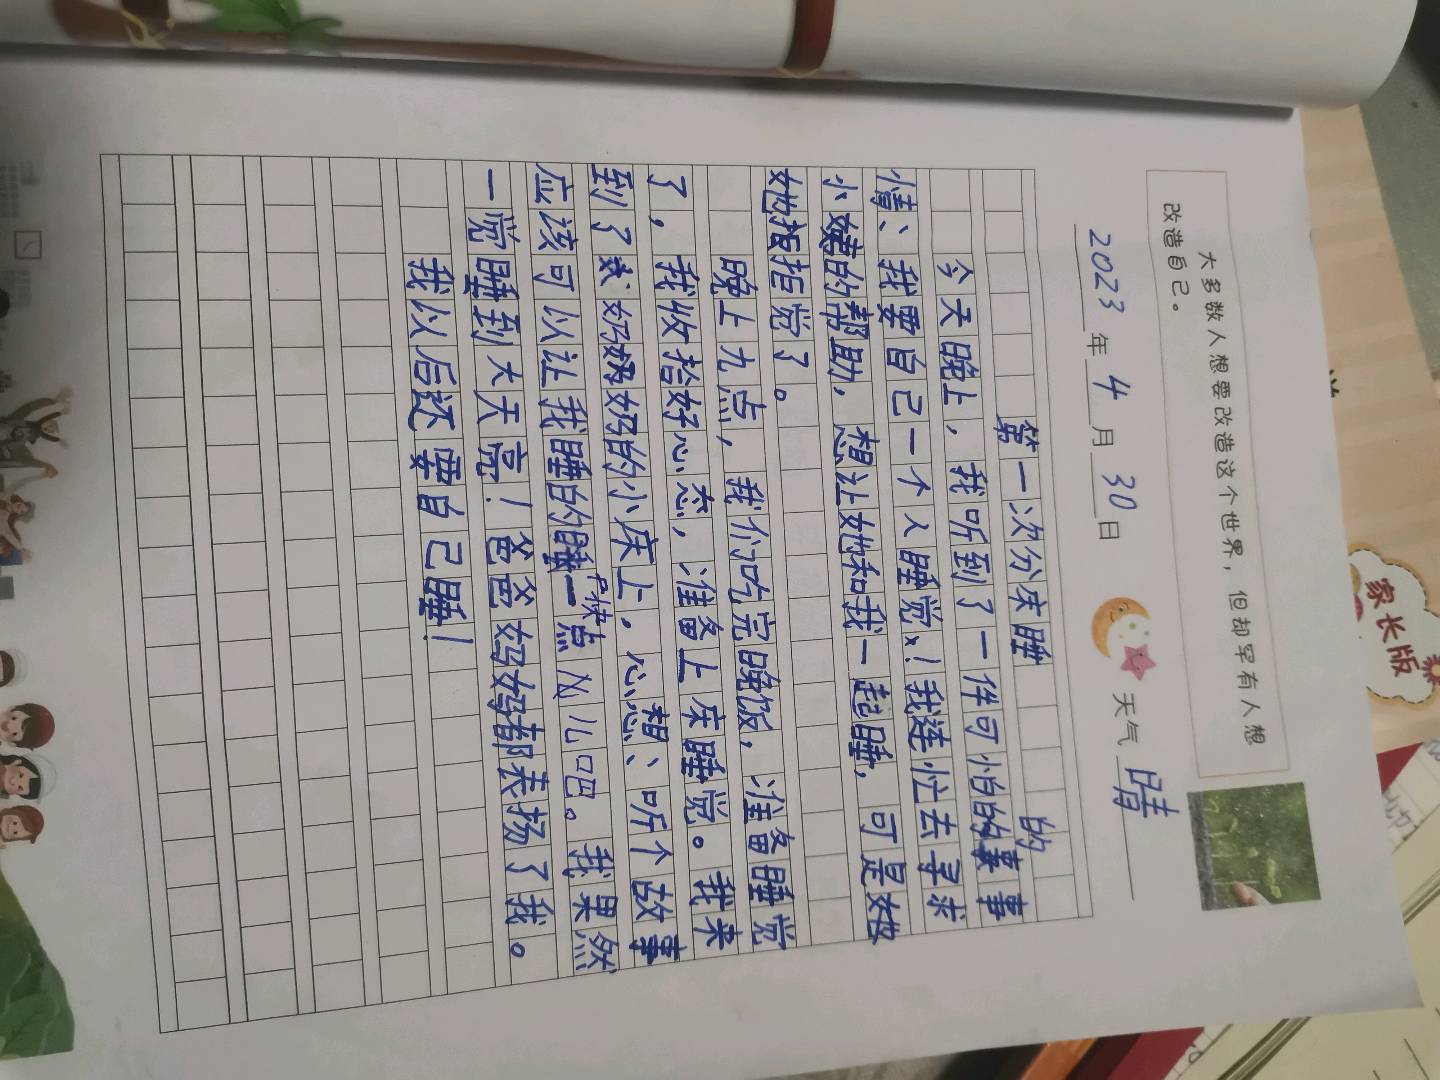 大多数人想要改造这个世界，但却罕有人想
改造自己。
2023年4月30日 天气 晴
第一次分床睡
的
今天晚上，我听到了一件可怕的事事
情、我要自己一个人睡觉！我连忙去寻求
小姨的帮助，想让她和我一起睡，可是姓
她拒拒觉了。
晚上九点，我们吃完晚饭，准备睡觉
了，我收拾好心态，准备上床睡觉。我来
到了奶奶奶的小床上，心想、听个故事
快点
应该可以让我睡的睡一点儿吧。我果然
一觉睡到大天亮！爸爸妈妈都表扬了我。
我以后还要自己睡！
家长版